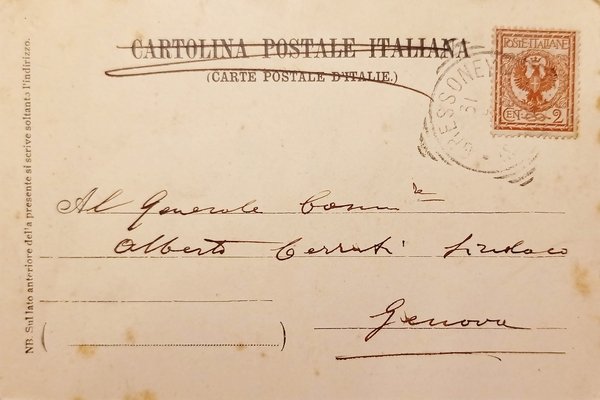 CARTOLINA POSTALE ITALIANA
(CARTE POSTALE D'ITALIE.)
POSTE ITALIANE
CEN. 2
GRESSONEY
31
Al Generale Comm re
Alberto Cerruti Sindaco
Genova
NB. Sul lato anteriore della presente si scrive soltanto l'indirizzo.